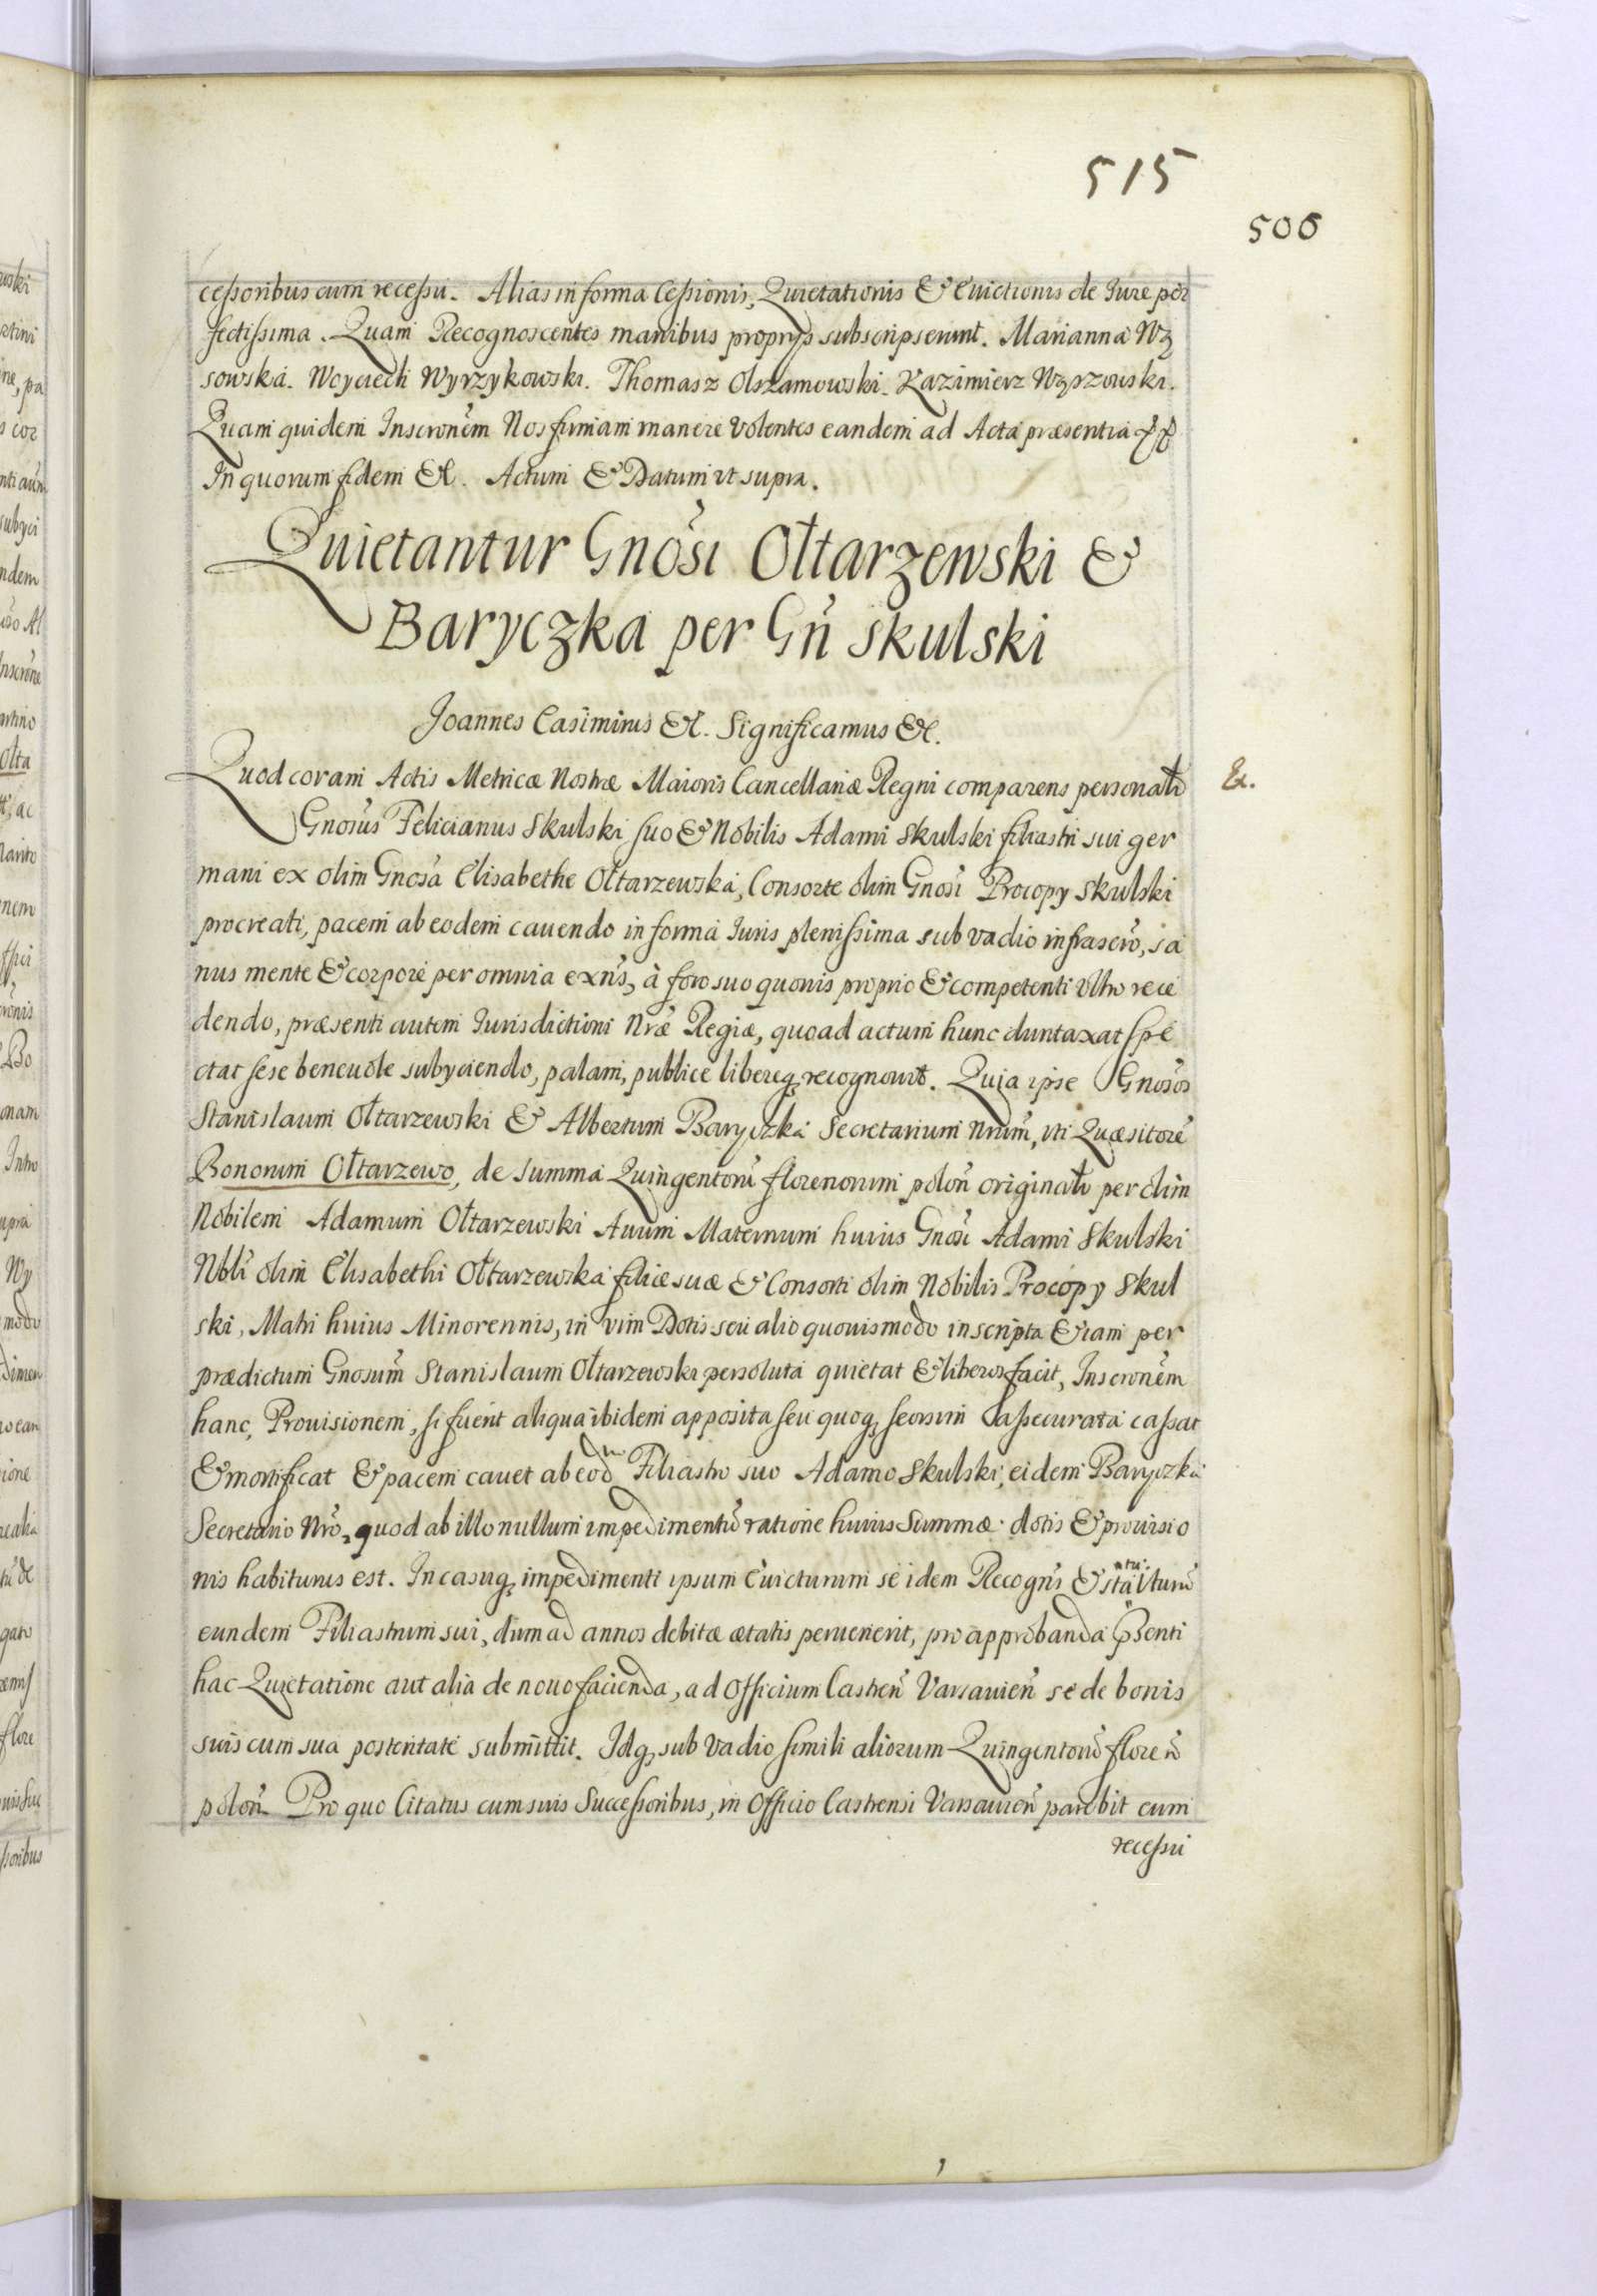 515
506
cessoribus cum recessu. Alias in forma Cessionis, Quietationis & Euictionis de Iure per
fectissima. Quam Recognoscentes manibus proprys subscripserunt. Marianna Wą
sowska. Woyciech Wyrzykowski. Thomasz Olszamowski. Kazimierz
Quam quidem Inscronem Nos firmam manere volentes eandem ad Acta præsentia
In quorum fidem &c. Actum & Datum vt supra.
Quietantur Gnosi Ołtarzewski &
Baryczka per Gn̄ Skulski
Joannes Casimirus &c. Significamus &c.
Quod coram Actis Metricæ Nostræ Maioris Cancellariæ Regni comparens personalr
&.
Gnosus Felicianus Skulski suo & Nobilis Adami Skulski filiastri sui ger
mani ex olim Gnosa Elisabethe Ołtarzewska, Consorte olim Gnosi Procopy Skulski
procreati, pacem ab eodem cauendo in forma Iuris plenissima sub vadio infrascro, sa
nus mente & corpore per omnia exns, à foro suo quouis proprio & competenti vltro rece
dendo, præsenti autem Iurisdictioni Nræ Regiæ, quoad actum hunc duntaxat spe
ctat sese beneuole subyciendo, palam, publice libereq recognouit. Quia ipse Gnosos
Stanislaum Ołtarzewski & Albertum Baryczka Secretarium Nrum, vti Quæsitore
Bonorum Ołtarzewo, de summa Quingentoru florenorum polon originalr per olim
Nobilem Adamum Ołtarzewski Auum Maternum huius Gnosi Adami Skulski
Nbli olim Elisabethi Ołtarzewska filiæ suæ & Consorti olim Nobilis Procopy Skul
ski, Matri huius Minorennis, in vim Dotis seu alio quouis modo inscripta & iam per
prædictum Gnosum Stanislaum Ołtarzewski persoluta quietat & liberos facit, Inscronem
hanc, Prouisionem, si fuerit aliqua ibidem apposita seu quoq seorsim assecurata cassat
& mortificat & pacem cauet ab eodm Filiastro suo Adamo Skulski, eidem Baryczka
Secretario Nro, quod ab illo nullum impedimentu ratione huius Summæ dotis & prouisio
nis habiturus est. In casuq impedimenti ipsum Euicturum se idem Recogns & statuturu
eundem Filiastrum sui, dum ad annos debitæ ætatis peruenerit, pro approbanda pnti
hac Quietatione aut alia de nouo facienda, ad Officium Castren Varsauien se de bonis
suis cum sua posteritate submittit. Idq sub Vadio simili aliorum Quingentoru floren
polon. Pro quo Citatus cum suis Successoribus, in Officio Castrensi Varsauien parebit cum
recessu